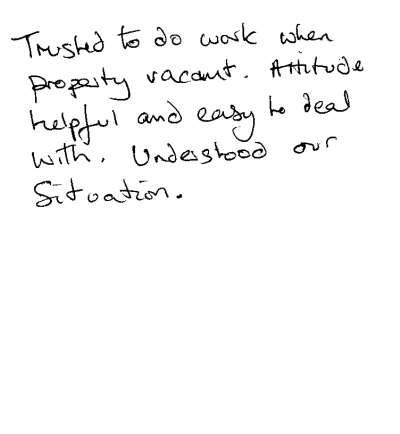 Trusted to do work when
property vacant. Attitude
helpful and easy to deal
with. Understood our
Situation.